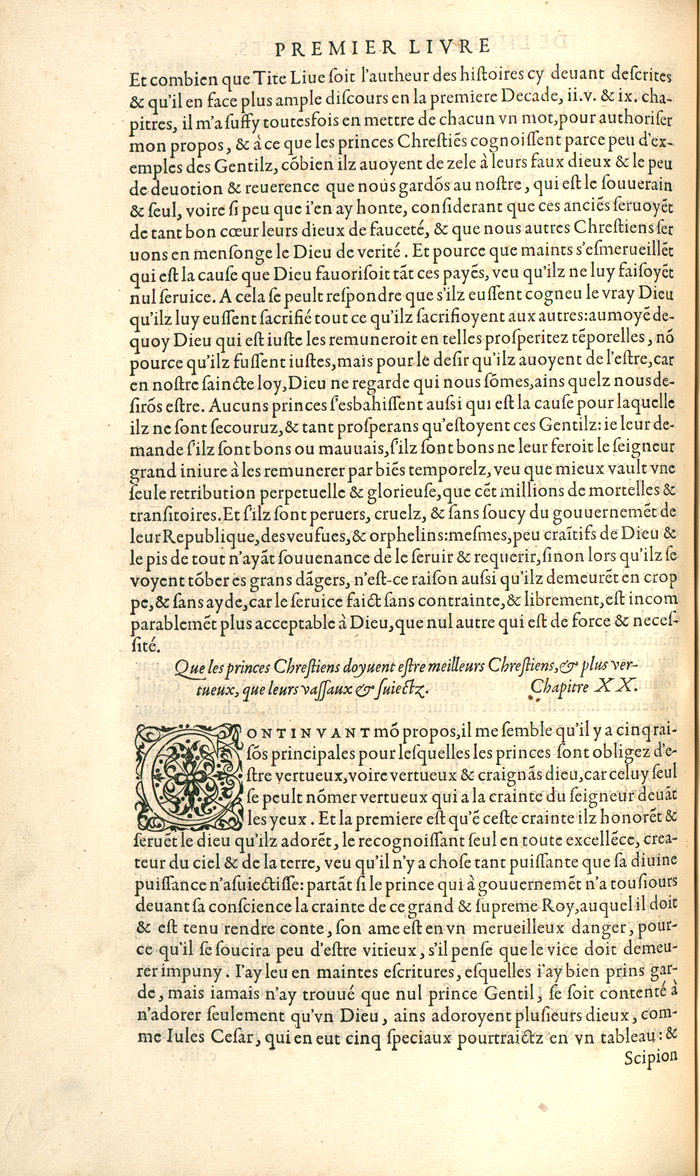 PREMIER LIVRE
Et combien que Tite Liue ſoit l'autheur des hiſtoires cy deuant deſcrites
& qu'il en face plus ample diſcours en la premiere Decade, ii.v. & ix. cha-
pitres, il m'a ſuffy toutesfois en mettre de chacun vn mot,pour authoriſer
mon propos, & à ce que les princes Chreſtiẽs cognoiſſent parce peu d'ex-
emples des Gentilz, cõbien ilz auoyent de zele à leurs faux dieux & le peu
de deuotion & reuerence que nous gardõs au noſtre, qui eſt le ſouuerain
& ſeul, voire ſi peu que i'en ay honte, conſiderant que ces anciẽs ſeruoyẽt
de tant bon cœur leurs dieux de fauceté, & que nous autres Chreſtiens ſer
uons en menſonge le Dieu de verité. Et pource que maints s'eſmerueillẽt
qui eſt la cauſe que Dieu fauoriſoit tãt ces payẽs, veu qu'ilz ne luy faiſoyẽt
nul ſeruice. A cela ſe peult reſpondre que s'ilz euſſent cogneu le vray Dieu
qu'ilz luy euſſent ſacrifié tout ce qu'ilz ſacrifioyent aux autres:aumoyẽ de-
quoy Dieu qui eſt iuſte les remuneroit en telles proſperitez tẽporelles, nõ
pource qu'ilz fuſſent iuſtes,mais pour le deſir qu'ilz auoyent de l'eſtre,car
en noſtre ſaincte loy,Dieu ne regarde qui nous ſõmes,ains quelz nous de-
ſirõs eſtre. Aucuns princes ſ'esbahiſſent auſsi qui eſt la cauſe pour laquelle
ilz ne ſont ſecouruz,& tant proſperans qu'eſtoyent ces Gentilz: ie leur de-
mande ſ'ilz ſont bons ou mauuais,ſ'ilz ſont bons ne leur feroit le ſeigneur
grand iniure à les remunerer par biẽs temporelz, veu que mieux vault vne
ſeule retribution perpetuelle & glorieuſe,que cẽt millions de mortelles &
tranſitoires.Et ſ'ilz ſont peruers, cruelz, & ſans ſoucy du gouuernemẽt de
leur Republique,des veufues,& orphelins:meſmes,peu craĩtifs de Dieu &
le pis de tout n'ayãt ſouuenance de le ſeruir & requerir,ſinon lors qu'ilz ſe
voyent tõber es grans dãgers, n'eſt-ce raiſon auſsi qu'ilz demeurẽt en crop
pe,& ſans ayde,car le ſeruice faict ſans contrainte,& librement,eſt incom
parablemẽt plus acceptable à Dieu,que nul autre qui eſt de force & neceſ-
ſité.
Que les princes Chreſtiens doyuent eſtre meilleurs Chreſtiens,& plus ver-
tueux, que leurs vaſſaux & ſuiectz. Chapitre XX.
CONTINVANT mõ propos,il me ſemble qu'il y a cinq rai-
ſõs principales pour leſquelles les princes ſont obligez d'e-
ſtre vertueux,voire vertueux & craignãs dieu,car celuy ſeul
ſe peult nõmer vertueux qui a la crainte du ſeigneur deuãt
les yeux. Et la premiere eſt qu'ẽ ceſte crainte ilz honorẽt &
ſeruẽt le dieu qu'ilz adorẽt, le recognoiſſant ſeul en toute excellẽce, crea-
teur du ciel & de la terre, veu qu'il n'y a choſe tant puiſſante que ſa diuine
puiſſance n'aſuiectiſſe: partãt ſi le prince qui à gouuernemẽt n'a touſiours
deuant ſa conſcience la crainte de ce grand & ſupreme Roy,auquel il doit
& eſt tenu rendre conte, ſon ame eſt en vn merueilleux danger, pour-
ce qu'il ſe ſoucira peu d'eſtre vitieux, s'il penſe que le vice doit demeu-
rer impuny. I'ay leu en maintes eſcritures, eſquelles i'ay bien prins gar-
de, mais iamais n'ay trouué que nul prince Gentil, ſe ſoit contenté à
n'adorer ſeulement qu'vn Dieu, ains adoroyent pluſieurs dieux, com-
me Iules Ceſar, qui en eut cinq ſpeciaux pourtraictz en vn tableau: &
Scipion